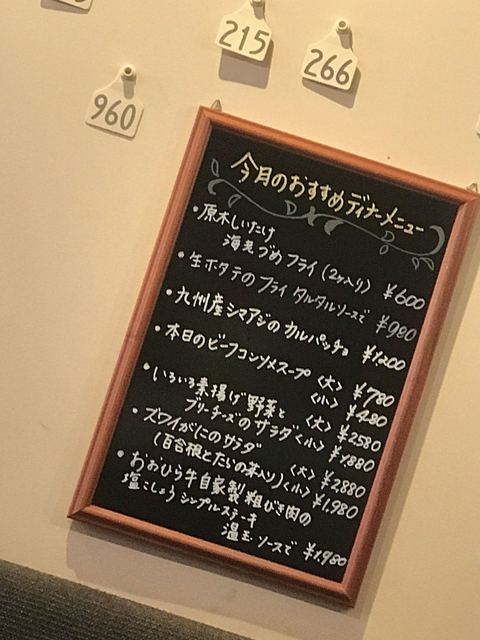 215
266
960
今月のおすすめディナーメニュー
・原木しいたけ
海老づめフライ(2ヶ入り) ¥600
・生ホタテのフライ タルタルソースで ¥980
・九州産シマアジのカルパッチョ ¥1,200
・本日のビーフコンソメスープ 〈大〉 ¥780
〈小〉 ¥480
・いろいろ素揚げ野菜と 〈大〉 ¥2580
ブリーチーズのサラダ〈小〉 ¥1,880
・ズワイがにのサラダ 〈大〉 ¥2880
(百合根とたらの芽入り)〈小〉 ¥1,980
・おおひら牛自家製粗びき肉の
塩こしょうシンプルステーキ
温玉ソースで ¥1,980